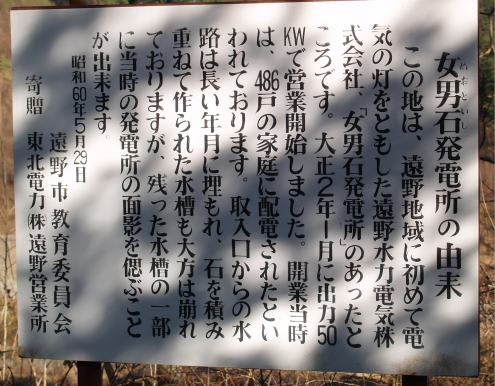 女男石発電所の由来
めおといし
この地は、遠野地域に初めて電
気の灯をともした遠野水力電気株
式会社、「女男石発電所」のあったと
ころです。大正2年1月に出力50
KWで営業開始しました。開業当時
は、486戸の家庭に配電されたとい
われております。取入口からの水
路は長い年月に埋もれ、石を積み
重ねて作られた水槽も大方は崩れ
ておりますが、残った水槽の一部
に当時の発電所の面影を偲ぶこと
が出来ます。
昭和60年5月29日
遠野市教育委員会
寄贈 東北電力㈱遠野営業所